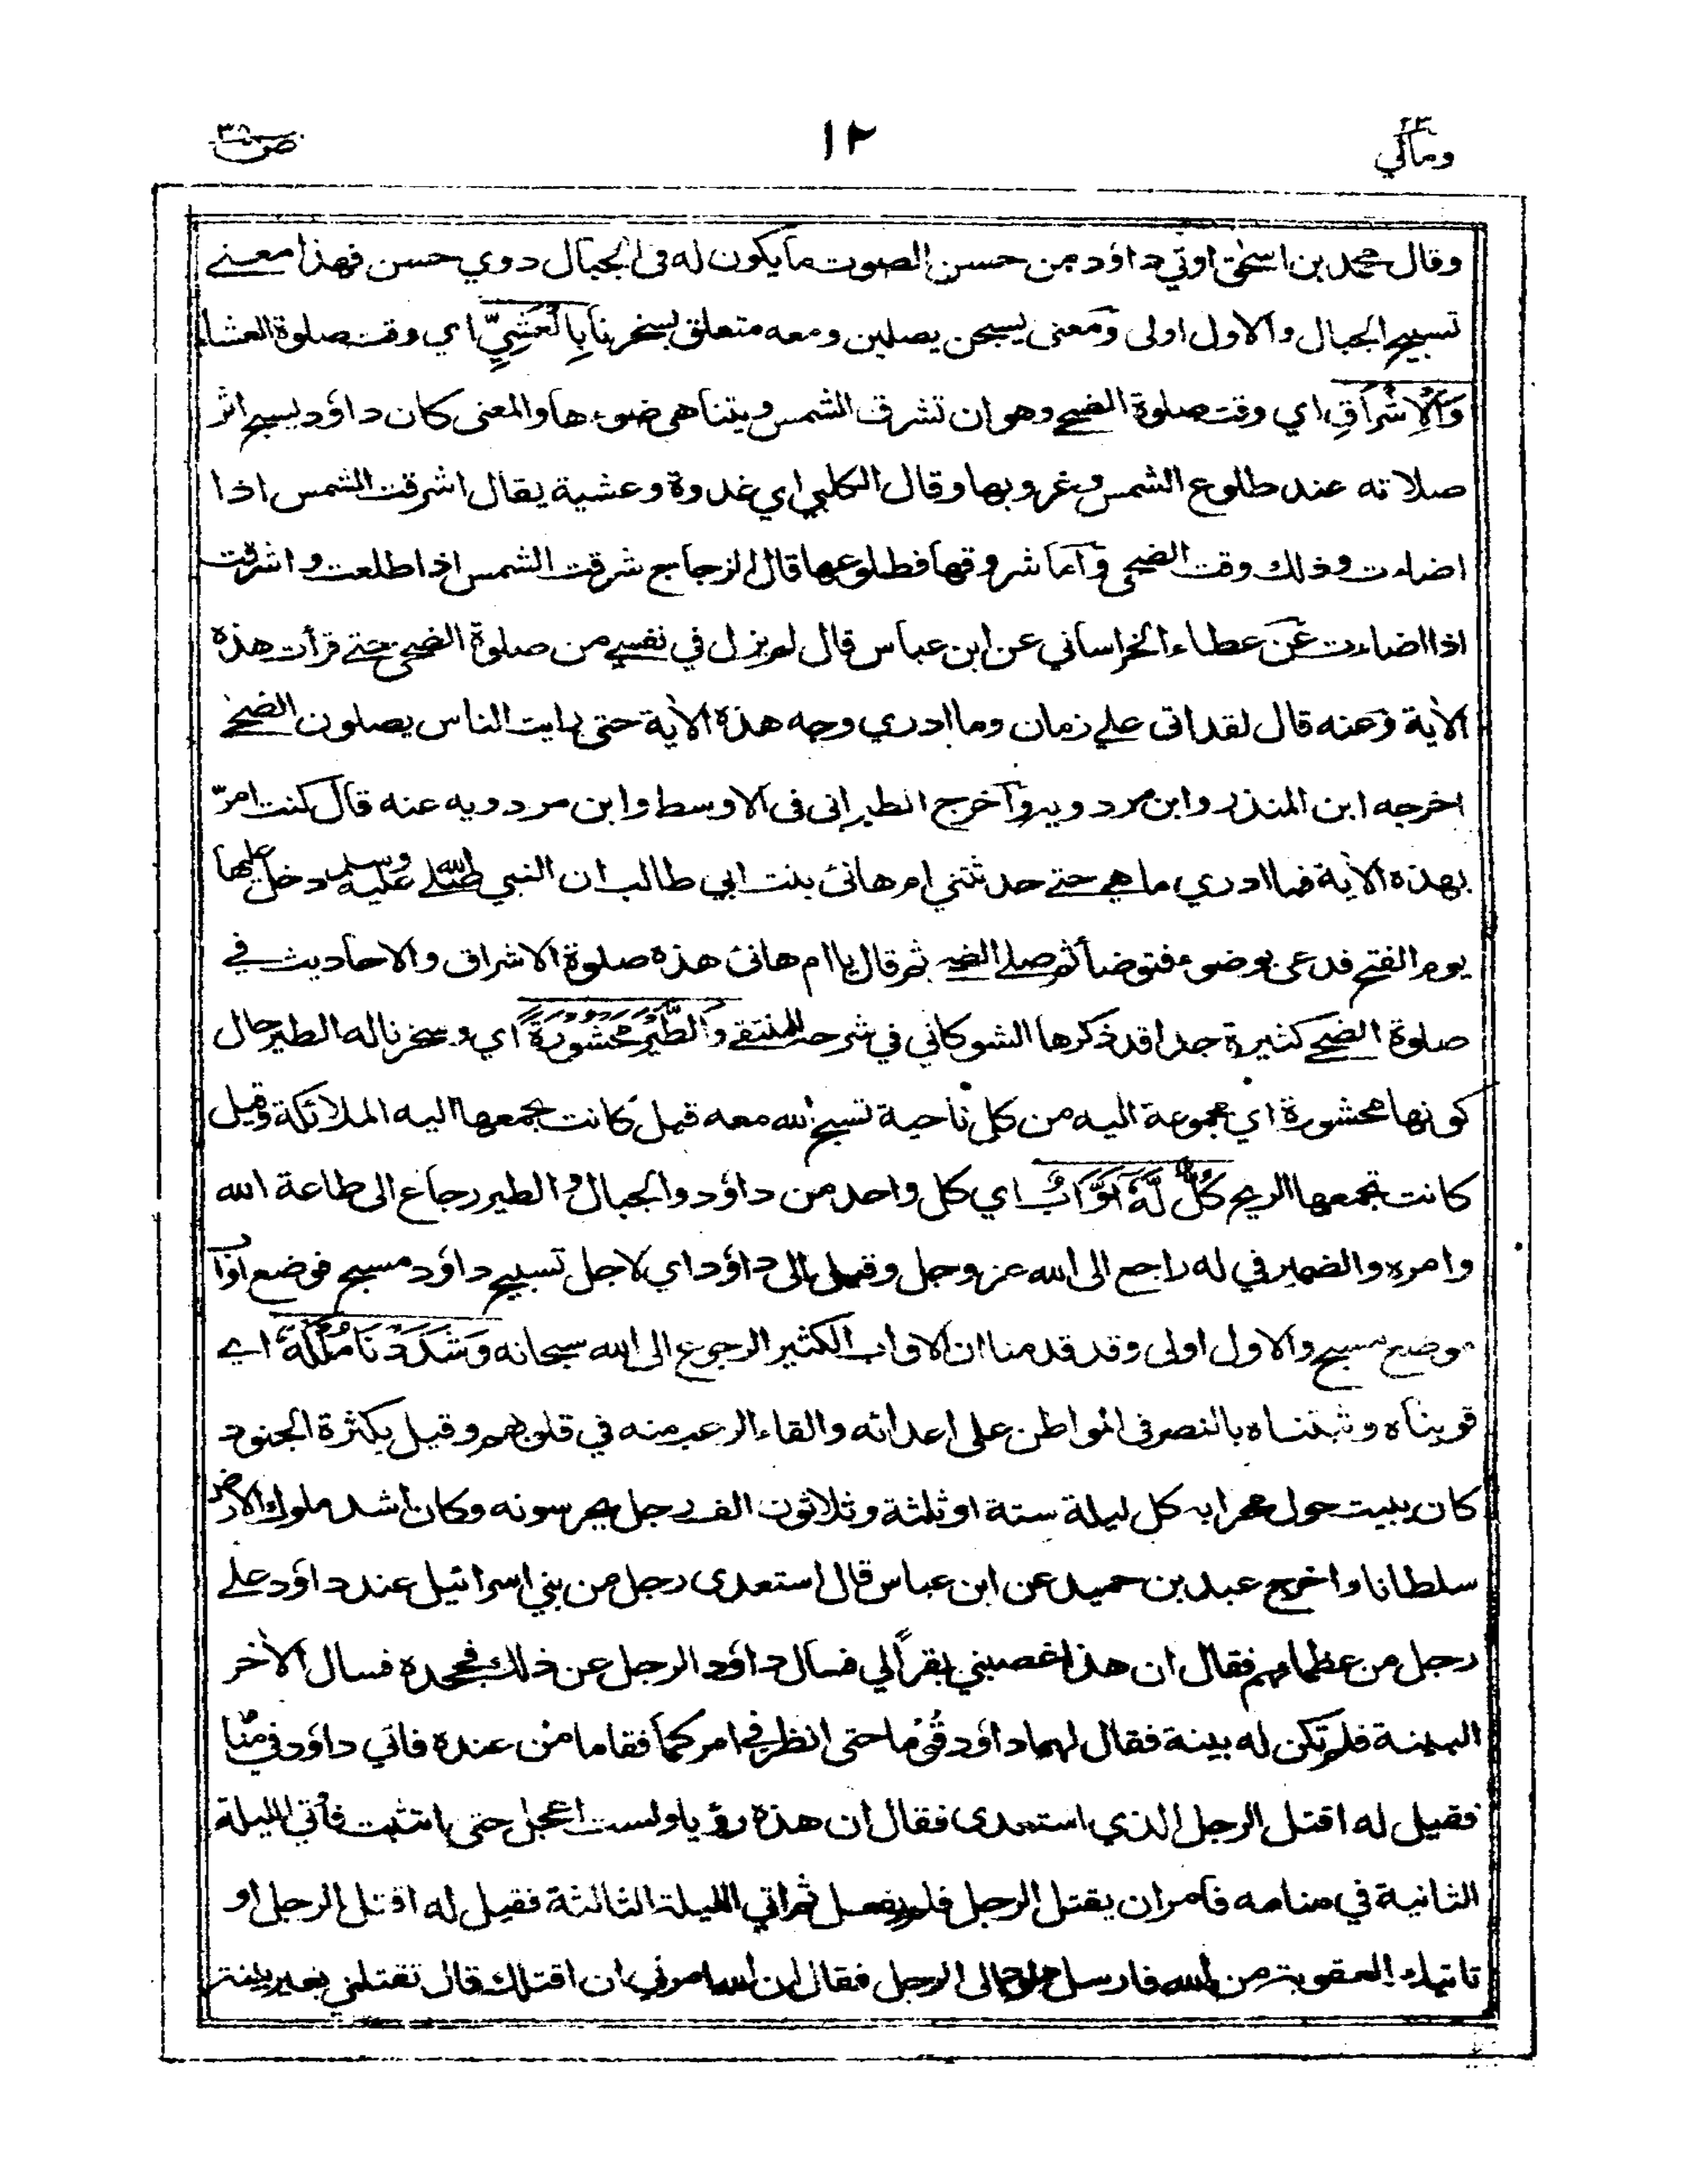 ومالي ٢٣
١٢
ص ٣٨
وقال محمد بن اسحٰق اوتي داؤد من حسن الصوت ما يكون له فى الجبال دوي حسن فهذا معنے
تسبيح الجبال والاول اولى ومعنى يسبحن يصلين ومعه متعلق بسخرنا بِالْعَشِيِّ اي وقت صلوة العشاء
وَالْاِشْرَاقِ اي وقت صلوة الضحے وهو ان تشرق الشمس ويتناهى ضوءها والمعنى كان داؤد يسبح اثر
صلاته عند طلوع الشمس وغروبها وقال الكلبي اي غدوة وعشية يقال اشرقت الشمس اذا
اضاءت وذلك وقت الضحى وآما شروقها فطلوعها قال الزجاج شرقت الشمس اذا طلعت واشرقت
اذا اضاءت عَن عطاء الخراساني عن ابن عباس قال لم يزل في نفسي من صلوة الضحى حتے قرأت هذه
الاٰية وعنه قال لقد اتى علي زمان وما ادري وجه هذه الاٰية حتى رايت الناس يصلون الضحٰے
اخرجه ابن المنذر وابن مردويه وآخرج الطبراني فى الاوسط وابن مردويه عنه قال كنت امرّ
بهذه الاٰية فما ادري ما هي حتے حدثتني ام هانئ بنت ابي طالب ان النبي صلى الله عليه وسلم دخل عليها
يوم الفتح فدعى بوضوء فتوضأ ثم صلے الضحے ثم قال يا ام هانئ هذه صلوة الاشراق والاحاديث في
صلوة الضحے كثيرة جدا قد ذكرها الشوكاني في شرحه للمنتقے وَالطَّيْرَ مَحْشُوْرَةً اي وسخرنا له الطير حال
كونها محشورة اي مجموعة اليه من كل ناحية تسبح الله معه قيل كانت تجمعها اليه الملائكة وقيل
كانت تجمعها الريح كُلٌّ لَّهٗ اَوَّابٌ اي كل واحد من داؤد والجبال والطير رجاع الى طاعة الله
وامره والضمير في له راجع الى الله عز وجل وقيل الى داؤد اي لاجل تسبيح داؤد مسبح فوضع اواب
موضع مسبح والاول اولى وقد قدمنا ان الاواب الكثير الرجوع الى الله سبحانه وَشَدَدْنَا مُلْكَهٗ اے
قويناه وثبتناه بالنصر فى المواطن على اعدائه والقاء الرعب منه في قلوبهم وقيل بكثرة الجنود
كان يبيت حول محرابه كل ليلة ستة او ثلثة وثلاثون الف رجل يحرسونه وكان اشد ملوك الارض
سلطانا واخرج عبد بن حميد عن ابن عباس قال استعدى رجل من بني اسرائيل عند داؤد علے
رجل من عظمائهم فقال ان هذا غصبني بقرا لي فسال داؤد الرجل عن ذلك فجحده فسال الاٰخر
البينة فلم تكن له بينة فقال لهما داؤد قُوْمَا حتى انظر في امركما فقاما من عنده فاتي داؤد في مَنَا
فقيل له اقتل الرجل الذي استعدى فقال ان هذه رؤيا ولست اعجل حتى اتثبت فأتي الليلة
الثانية في منامه فأمر ان يقتل الرجل فلم يفعل ثم اتي الليلة الثالثة فقيل له اقتل الرجل او
تاتيك العقوبة من الله فارسل داؤد الى الرجل فقال ان الله امرني ان اقتلك قال تقتلني بغير بينة